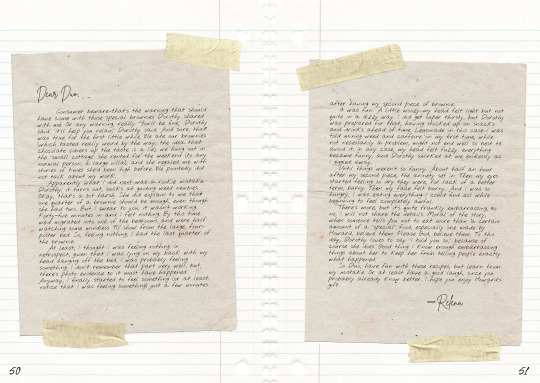 Dear Dun...
Consumer beware-that's the warning that should
have come with those special brownies Dorothy shared
with me. Or any warning, really. "You'll be fine," Dorothy
said. "It'll help you relax," Dorothy said. And sure, that
was true for the first little while. We ate our brownies
(which tasted really weird by the way, the idea that
chocolate covers up the taste is a lie), we hung out in
the "small cottage" she rented for the weekend (to any
normal person, a large villa), and she regaled me with
stories of times she'd been high before. We pointedly did
not talk about my work.
Apparently what I did next was a rookie mistake.
Dorothy, it turns out, sucks at guiding weed newbies.
Okay, that's a bit harsh. She did explain to me that
one quarter of a brownie should be enough, even though
she had two. But I swear to you, it wasn't working.
Forty-five minutes in and I felt nothing. By this time
we'd migrated into one of the bedrooms and were half
watching some mindless TV show from the large four-
poster bed. So, feeling nothing, I had the last quarter of
the brownie.
At least, I thought I was feeling nothing. In
retrospect, given that I was lying on my back with my
head hanging off the bed, I was probably feeling
something. I don't remember that part very well, but
there's photo evidence so it must have happened.
Anyway, I finally started to feel something (or at least
notice that I was feeling something) just a few minutes
50
after having my second piece of brownie.
It was fun. A little woozy-my head felt light but not
quite in a dizzy way. I did get super thirsty, but Dorothy
was prepared for that, having stocked up on snacks
and drinks ahead of time. Lemonade in this case-I was
told mixing weed and caffeine on my first time, while
not necessarily a problem, might not end well so best to
avoid it. In any case, my head felt fuzzy, everything
became funny, and Dorothy snickered at me endlessly as
I giggled away.
Until things weren't so funny. About half an hour
after my second piece, the anxiety set in. Then my eyes
started feeling so very, very, for lack of a better
term, blurry. Then my face felt blurry. And I was so
hungry, I was eating everything I could find all while
beginning to feel completely awful.
There's more, but it's quite frankly embarrassing so
no, I will not share the details. Moral of the story,
when someone tells you not to eat more than a certain
amount of a "special" food, especially one made by
Howard, believe them. Please God, believe them. To this
day, Dorothy loves to say "I told you so," because of
course she does. Good thing I know enough embarrassing
things about her to keep her from telling people exactly
what happened.
So Dun, have fun with these recipes but learn from
my mistake. Or at least have a good laugh, since you
probably already know better. I hope you enjoy Howard's
gift.
—Relena
51